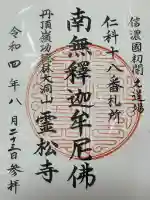 信濃國初開之道場
仁科十八番札所
南無釋迦牟尼佛
丹頂嶺功
大洞山
霊松寺
令和四年八月二十三日参拝